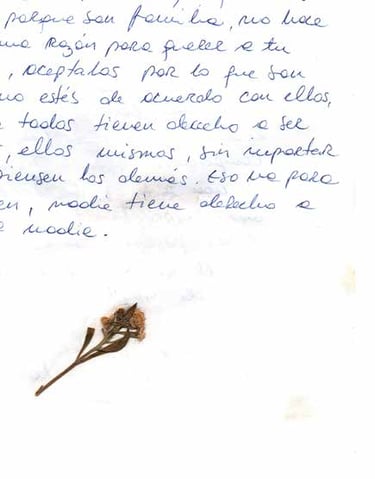 porque son familia, no hace
razón para querer a tu
, aceptalos por lo que son
no estés de acuerdo con ellos,
todos tienen derecho a ser
, ellos mismos, sin importar
piensen los demás. Eso va para
, nadie tiene derecho a
nadie.